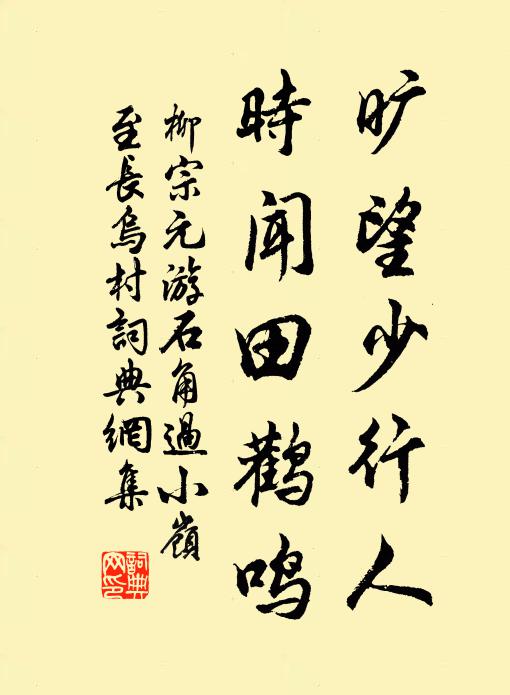 旷望少行人
時闻田鹳鸣
柳宗元游石角過小嶺
至長烏村詞典網集
詞典
网印